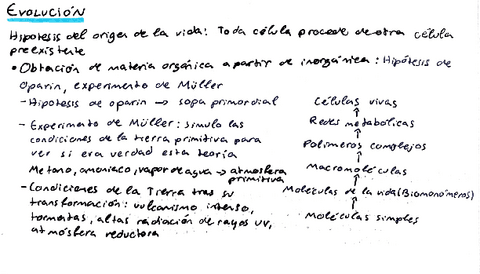 EVOLUCIÓN
Hipotesis del origen de la vida: Toda célula procede de otra célula
preexistente
• Obtención de materia orgánica a partir de inorgánica: Hipótesis de
Oparin, experimento de Müller
- Hipotesis de oparin → sopa primordial
- Experimento de Müller: simulo las
condiciones de la tierra primitiva para
ver si era verdad esta teoría
Metano, amoniaco, vapor de agua → atmosfera
primitiva
- Condiciones de la Tierra tras su
transformación: vulcanismo intenso,
tormentas, altas radiación de rayos UV,
atmósfera reductora
Células vivas
↑
Redes metabólicas
↑
Polimeros complejos
↑
Macromoléculas
↑
Moleculas de la vida (Biomonómeros)
↑
Moléculas simples